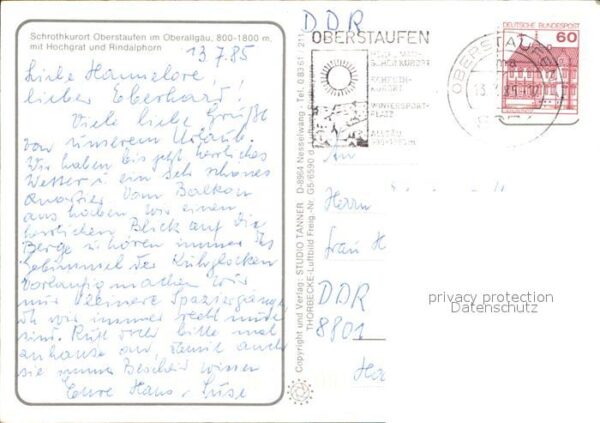 Schrothkurort Oberstaufen im Oberallgäu, 800-1800 m,
mit Hochgrat und Rindalphorn
13.7.85
Liebe Hannelore,
lieber Eberhard!
Viele liebe Grüße
von unserem Urlaub.
Wir haben bis jetzt herrliches
Wetter u. ein sehr schönes
Quartier. Vom Balkon
aus haben wir einen
herrlichen Blick auf die
Berge u. hören immer das
Gebimmel der Kuhglocken
Vorläufig machen wir
nur kleinere Spaziergänge,
wir immer recht müde
sind. Ruft doch bitte mal
zuhause an, damit auch
sie Bescheid wissen
Eure Hans-
Copyright und Verlag: STUDIO TANNER D-8964 Nesselwang - Tel. 08361
THORBECKE-Luftbild Freig.-Nr.
DDR
OBERSTAUFEN
SCHROTHKURORT
WINTERSPORT-
PLATZ
ALLGÄU
OBERSTAUFEN
DEUTSCHE BUNDESPOST
60
An
Herrn
Frau H
DDR
8801
privacy protection
Datenschutz